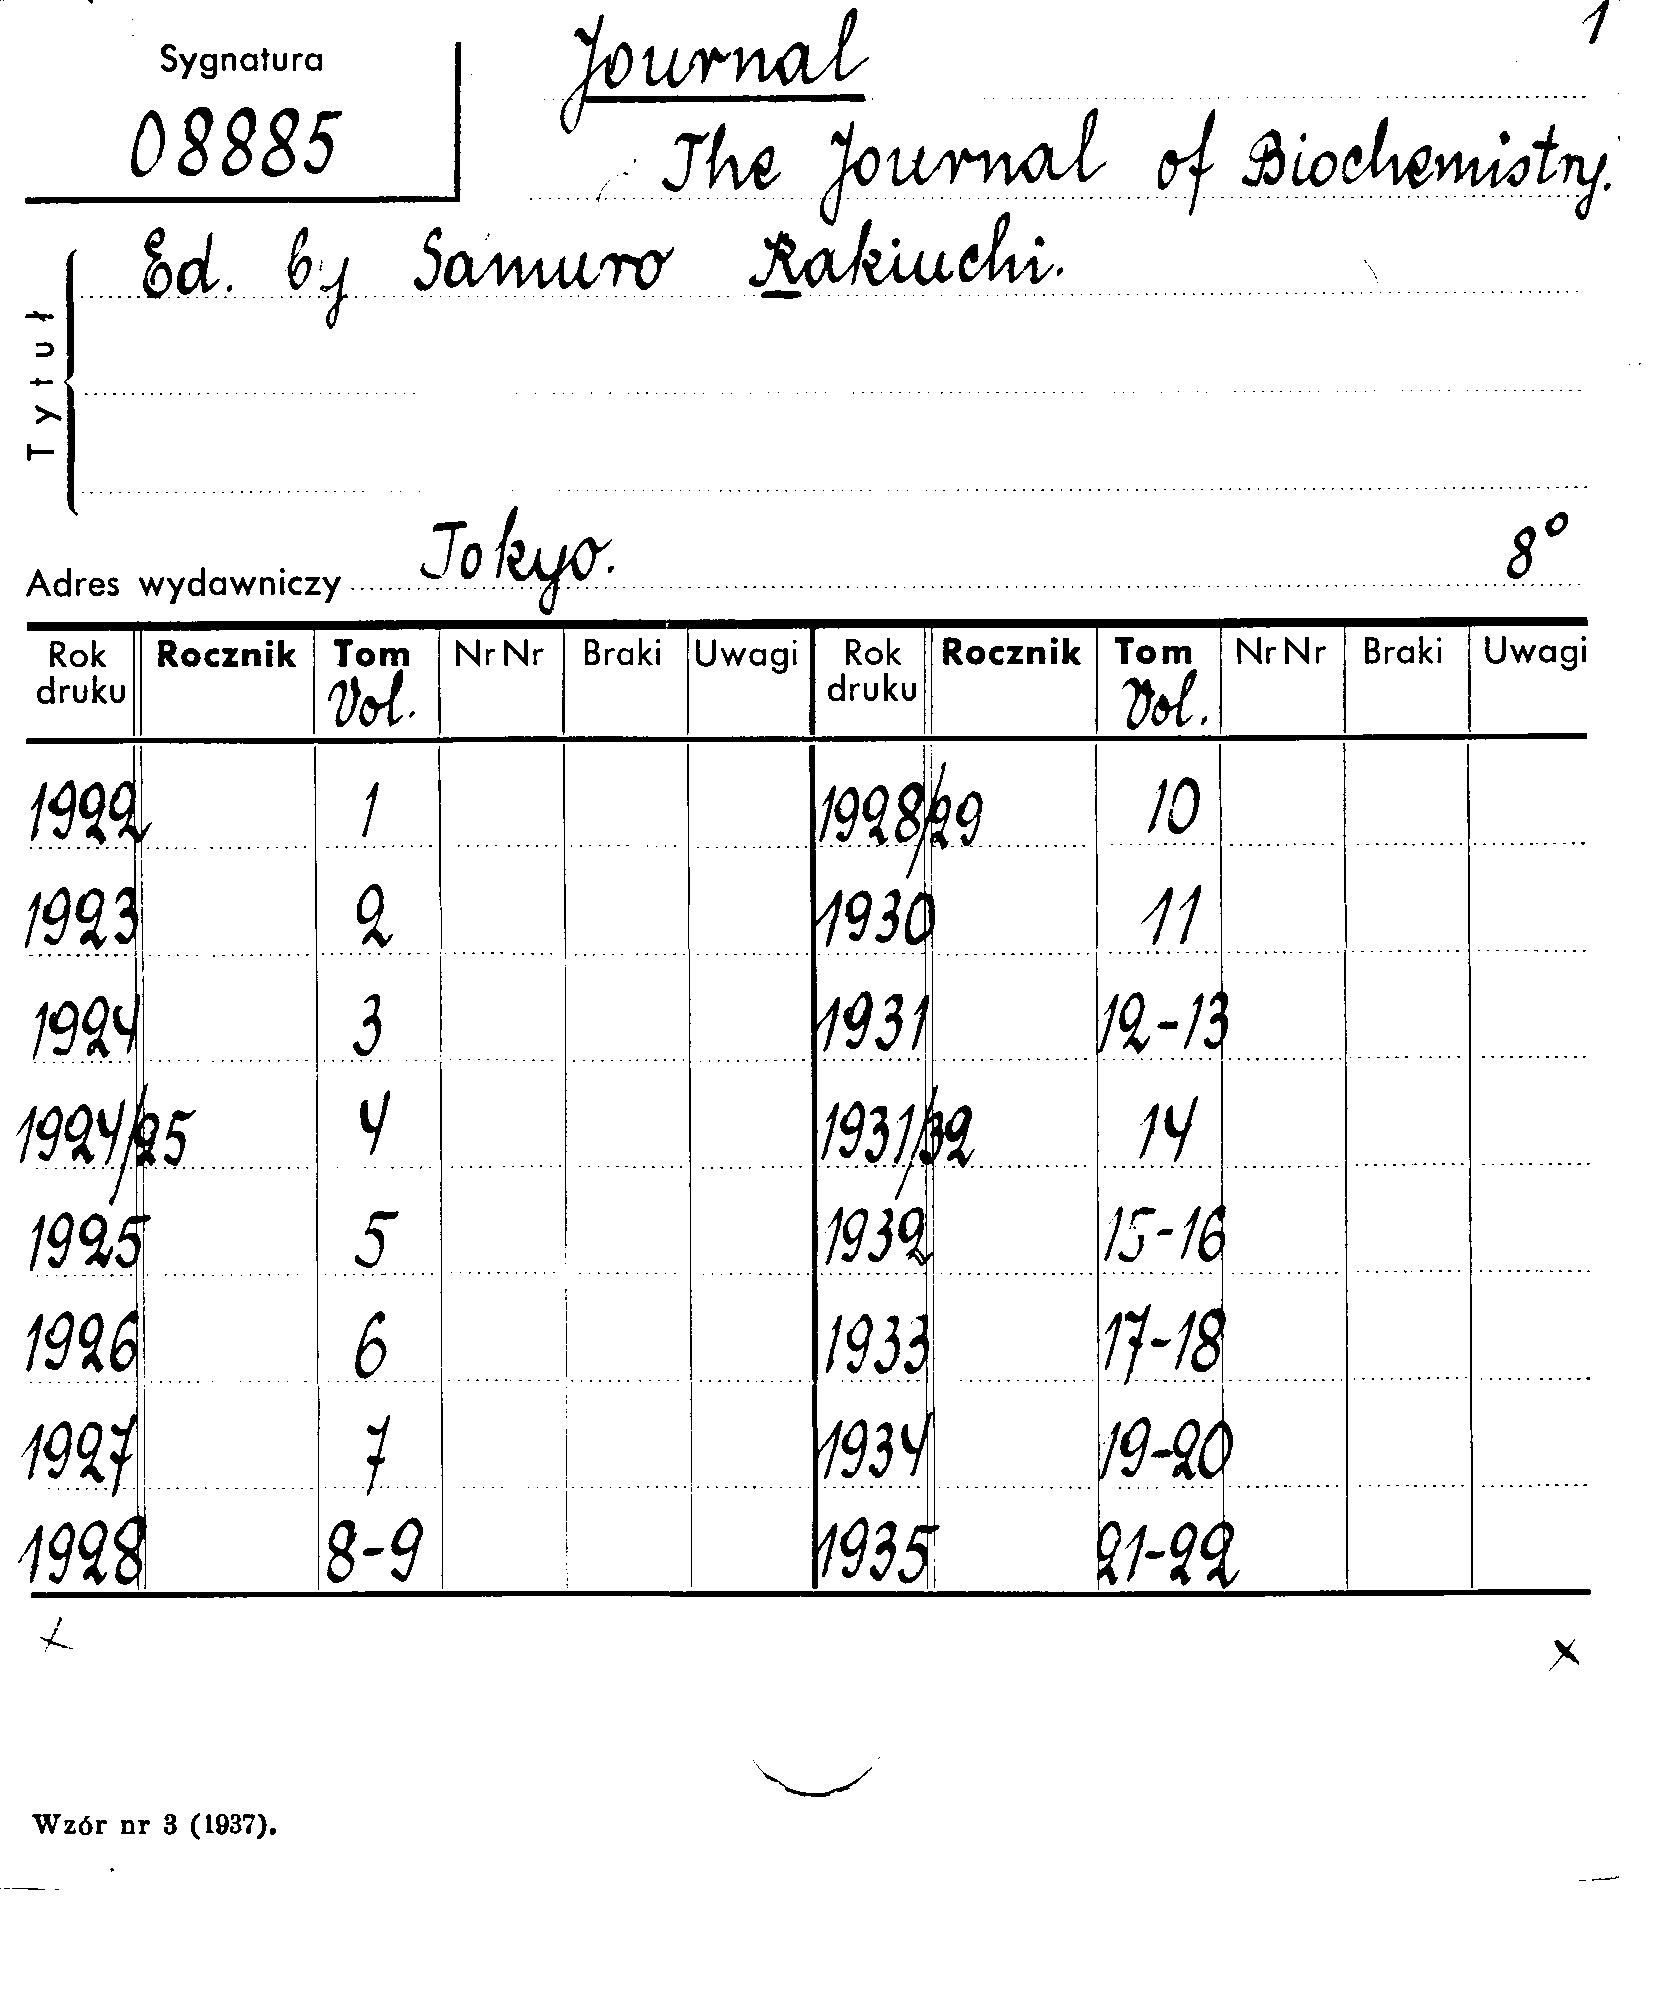 1
Sygnatura
08885
Journal
The Journal of Biochemistry.
Ed. by Samuro Kakiuchi.
Tytuł
Adres wydawniczy Tokyo. 8°
Rok druku Rocznik Tom Vol. Nr Nr Braki Uwagi Rok druku Rocznik Tom Vol. Nr Nr Braki Uwagi
1922 1 1928/29 10
1923 2 1930 11
1924 3 1931 12-13
1924/25 4 1931/32 14
1925 5 1932 15-16
1926 6 1933 17-18
1927 7 1934 19-20
1928 8-9 1935 21-22
x x
Wzór nr 3 (1937).